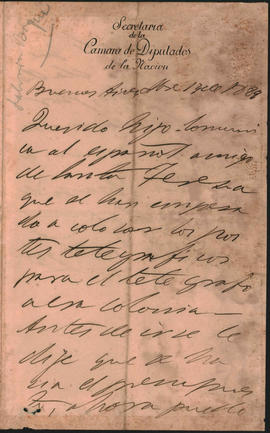 Secretaría
de la
Cámara de Diputados
de la Nación
Buenos Aires 17 de 1889
Querido hijo. Comuni
ca al español amigo
de Santa Teresa
que se han empeza
do a colocar los pos
tes telegraficos
para el telegrafo
a esa colonia.
Antes de irse le
dije que se ha
ria el presupues
to, ahora puede